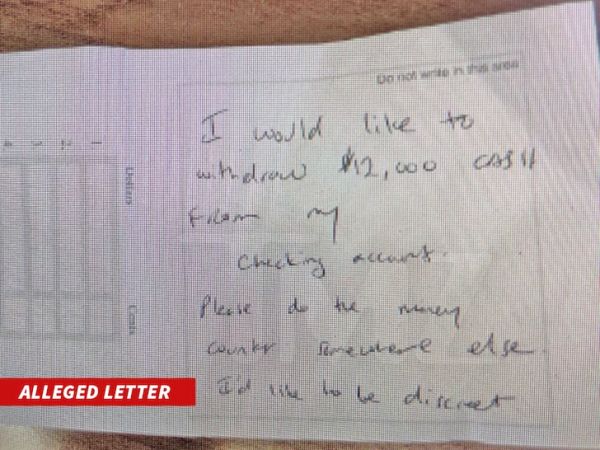 Do not write in this area
I would like to
withdraw $12,000 CASH
From my
Checking account.
Please do the money
count somewhere else.
I'd like to be discreet
Dollars
Cents
ALLEGED LETTER